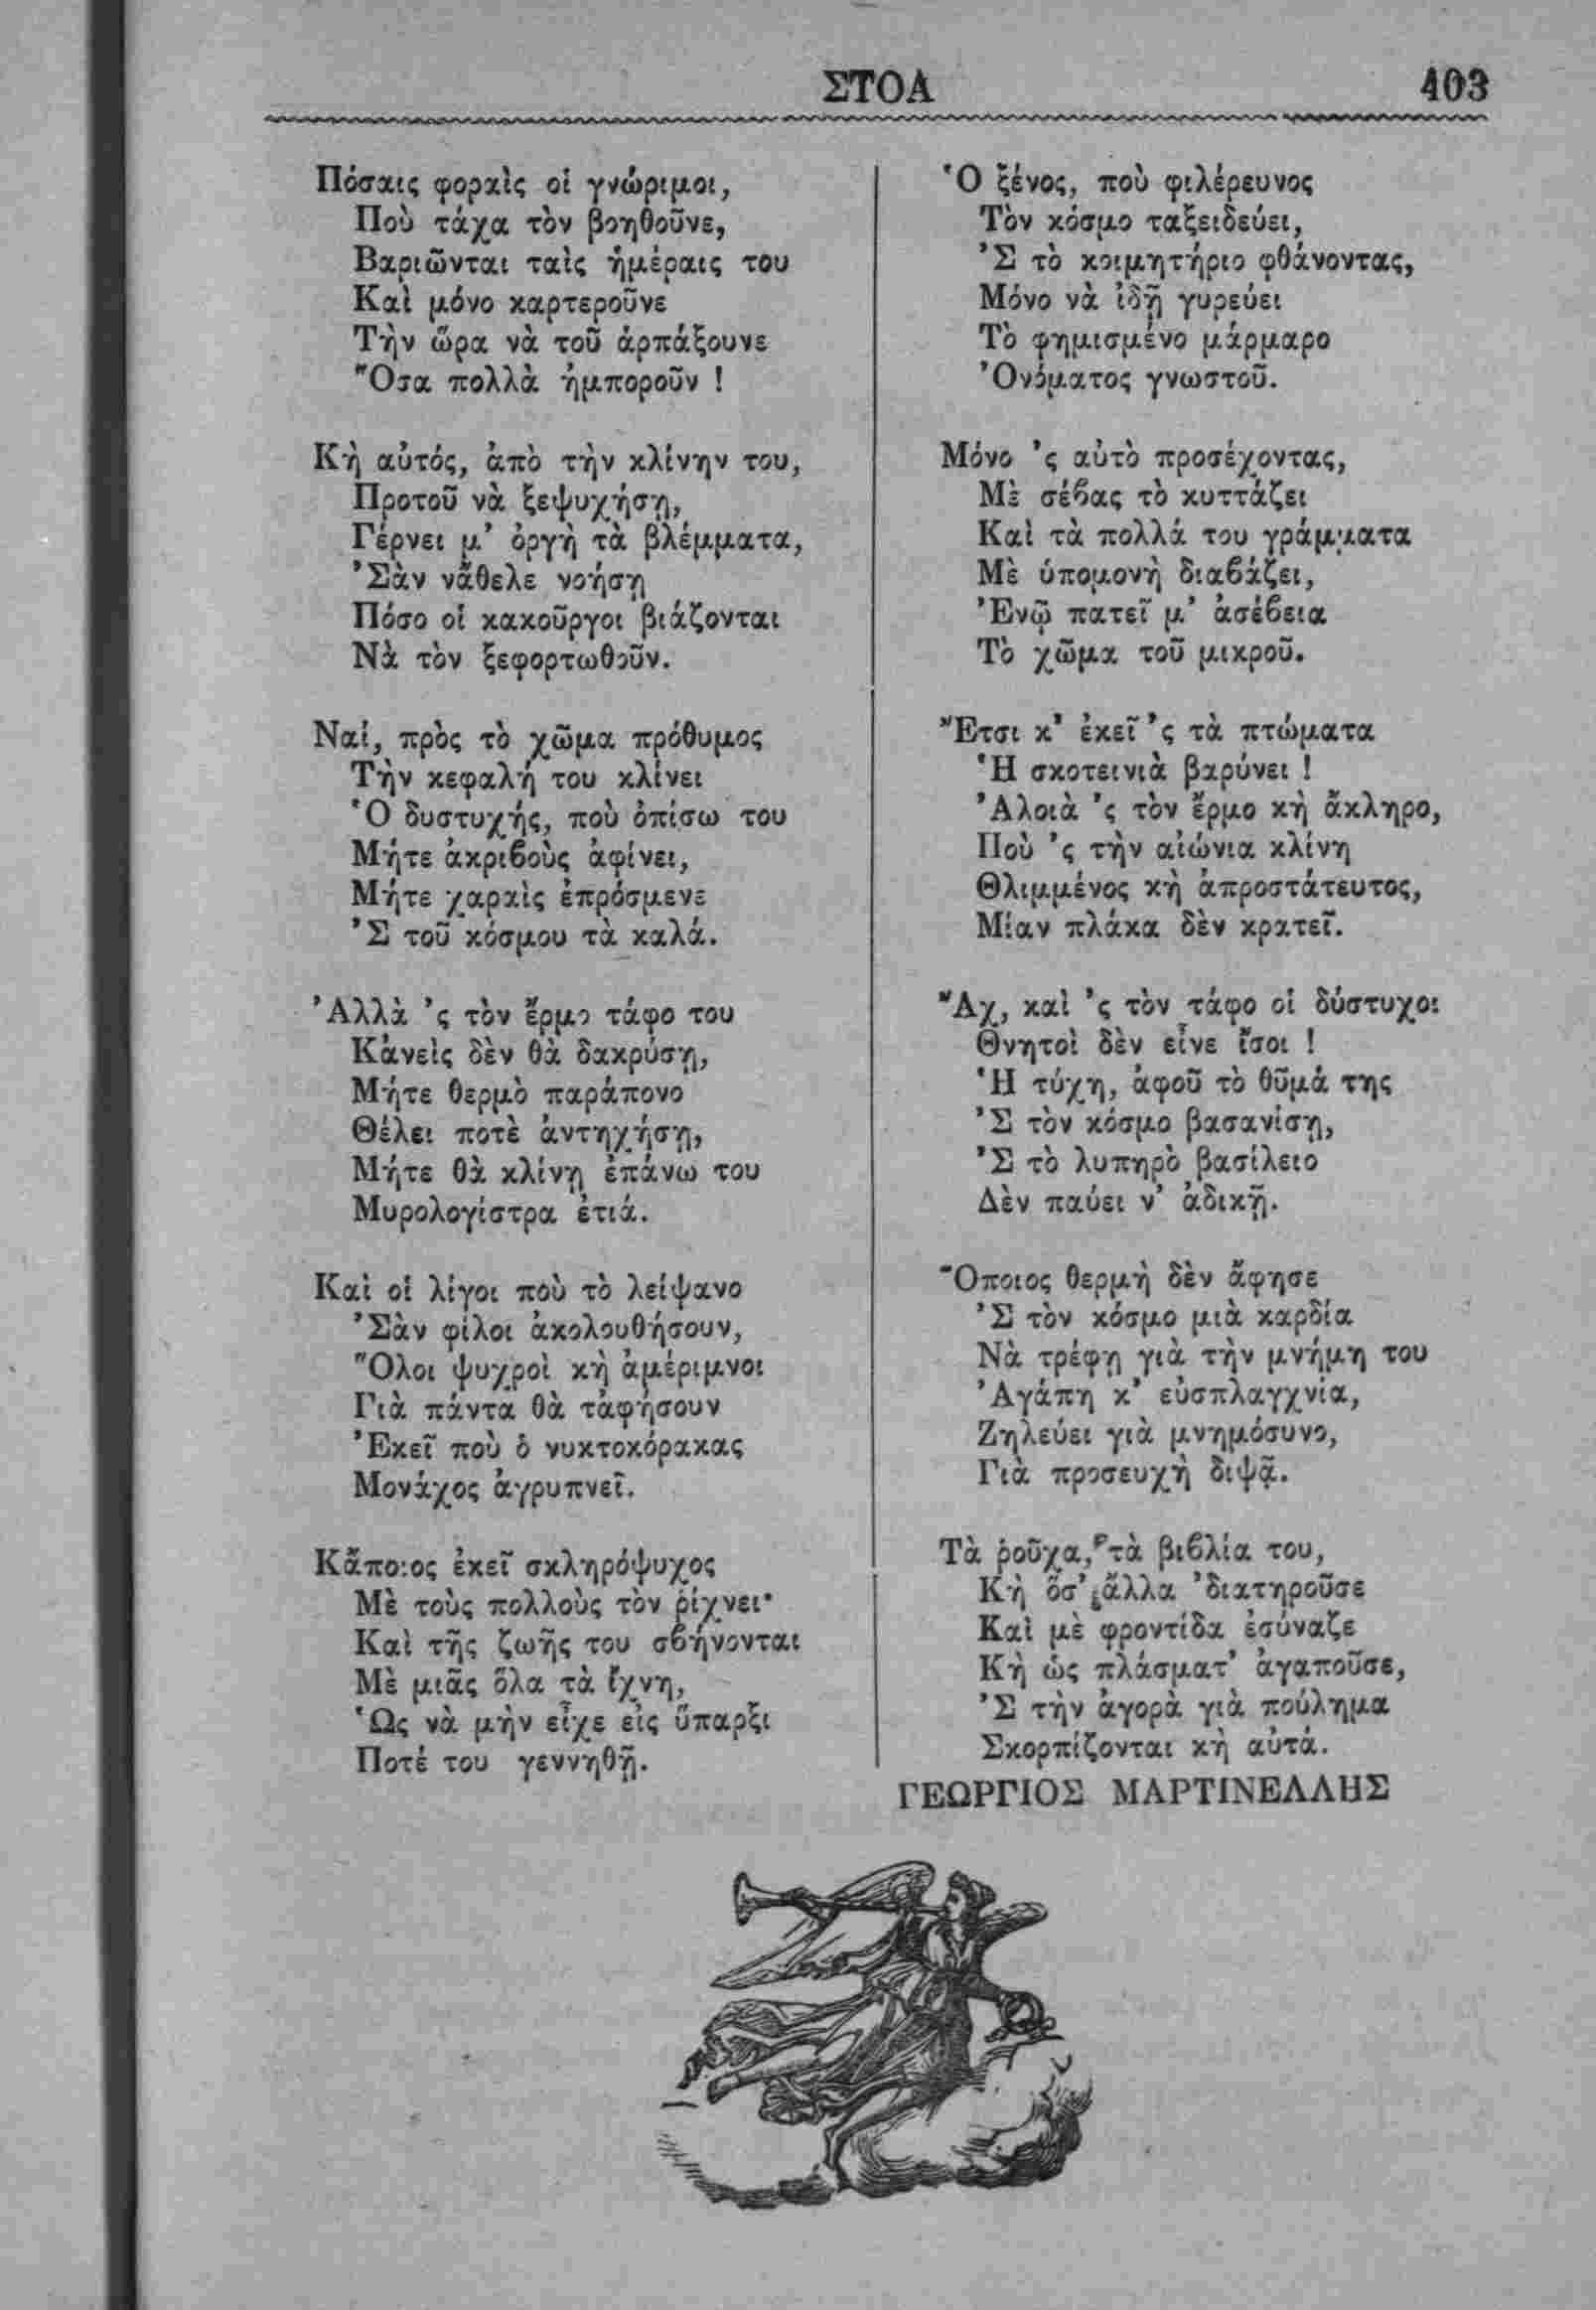 ΣΤΟΑ 403
Πόσαις φοραὶς οἱ γνώριμοι,
Ποὺ τάχα τὸν βοηθοῦνε,
Βαριῶνται ταὶς ἡμέραις του
Καὶ μόνο καρτεροῦνε
Τὴν ὥρα νὰ τοῦ ἁρπάξουνε
Ὅσα πολλὰ ἠμποροῦν !
Κὴ αὐτός, ἀπὸ τὴν κλίνην του,
Προτοῦ νὰ ξεψυχήσῃ,
Γέρνει μ' ὀργὴ τὰ βλέμματα,
Ἐσὰν νἄθελε νοήσῃ
Πόσο οἱ κακοῦργοι βιάζονται
Νὰ τὸν ξεφορτωθοῦν.
Ναί, πρὸς τὸ χῶμα πρόθυμος
Τὴν κεφαλή του κλίνει
Ὁ δυστυχής, ποὺ ὀπίσω του
Μήτε ἀκριβοὺς ἀφίνει,
Μήτε χαραὶς ἐπρόσμενε
'Σ τοῦ κόσμου τὰ καλά.
Ἀλλὰ 'ς τὸν ἔρμο τάφο του
Κἀνεὶς δὲν θὰ δακρύσῃ,
Μήτε θερμὸ παράπονο
Θέλει ποτὲ ἀντηχήσῃ,
Μήτε θὰ κλίνῃ ἐπάνω του
Μυρολογίστρα ἐτιά.
Καὶ οἱ λίγοι ποὺ τὸ λείψανο
'Σὰν φίλοι ἀκολουθήσουν,
Ὅλοι ψυχροὶ κὴ ἀμέριμνοι
Γιὰ πάντα θὰ τἀφήσουν
Ἐκεῖ ποὺ ὁ νυκτοκόρακας
Μονάχος ἀγρυπνεῖ.
Κἄποιος ἐκεῖ σκληρόψυχος
Μὲ τοὺς πολλοὺς τὸν ῥίχνει·
Καὶ τῆς ζωῆς του σβήνονται
Μὲ μιᾶς ὅλα τὰ ἴχνη,
Ὡς νὰ μὴν εἶχε εἰς ὕπαρξι
Ποτέ του γεννηθῇ.
Ὁ ξένος, ποὺ φιλέρευνος
Τὸν κόσμο ταξειδεύει,
'Σ τὸ κοιμητήριο φθάνοντας,
Μόνο νὰ ἰδῇ γυρεύει
Τὸ φημισμένο μάρμαρο
Ὀνόματος γνωστοῦ.
Μόνο 'ς αὐτὸ προσέχοντας,
Μὲ σέβας τὸ κυττάζει
Καὶ τὰ πολλά του γράμματα
Μὲ ὑπομονὴ διαβάζει,
Ἐνῷ πατεῖ μ' ἀσέβεια
Τὸ χῶμα τοῦ μικροῦ.
Ἔτσι κ' ἐκεῖ 'ς τὰ πτώματα
Ἡ σκοτεινιὰ βαρύνει !
Ἀλοιὰ 'ς τὸν ἔρμο κὴ ἄκληρο,
Ποὺ 'ς τὴν αἰώνια κλίνη
Θλιμμένος κὴ ἀπροστάτευτος,
Μίαν πλάκα δὲν κρατεῖ.
Ἄχ, καὶ 'ς τὸν τάφο οἱ δύστυχοι
Θνητοὶ δὲν εἶνε ἴσοι !
Ἡ τύχη, ἀφοῦ τὸ θῦμά της
'Σ τὸν κόσμο βασανίσῃ,
'Σ τὸ λυπηρὸ βασίλειο
Δὲν παύει ν' ἀδικῇ.
Ὅποιος θερμὴ δὲν ἄφησε
'Σ τὸν κόσμο μιὰ καρδία
Νὰ τρέφῃ γιὰ τὴν μνήμη του
Ἀγάπη κ' εὐσπλαγχνία,
Ζηλεύει γιὰ μνημόσυνο,
Γιὰ προσευχὴ διψᾷ.
Τὰ ῥοῦχα, τὰ βιβλία του,
Κὴ ὅσ' ἄλλα 'διατηροῦσε
Καὶ μὲ φροντίδα ἐσύναζε
Κὴ ὡς πλάσματ' ἀγαποῦσε,
'Σ τὴν ἀγορὰ γιὰ πούλημα
Σκορπίζονται κὴ αὐτά.
ΓΕΩΡΓΙΟΣ ΜΑΡΤΙΝΕΛΛΗΣ